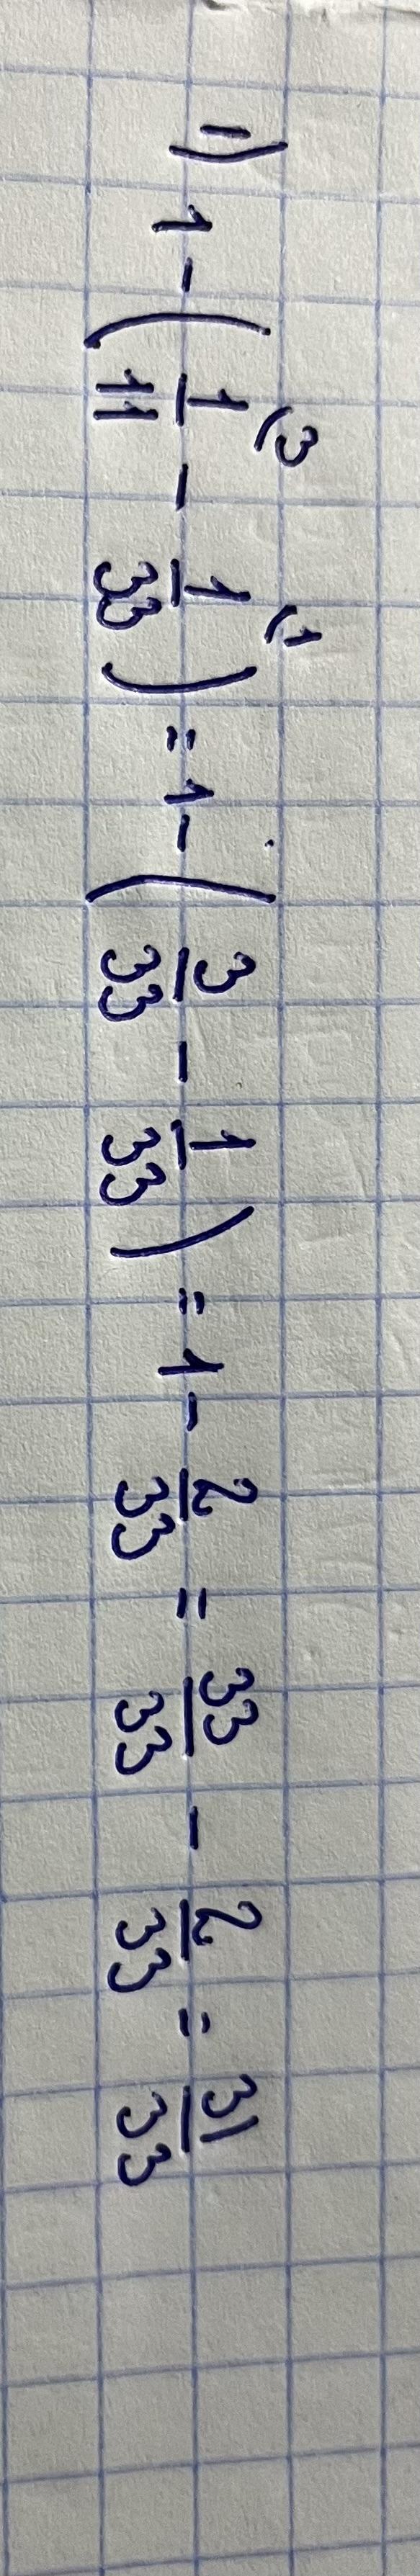 1) 1 - (1/11 ⁽³ - 1/33 ⁽¹) = 1 - (3/33 - 1/33) = 1 - 2/33 = 33/33 - 2/33 = 31/33